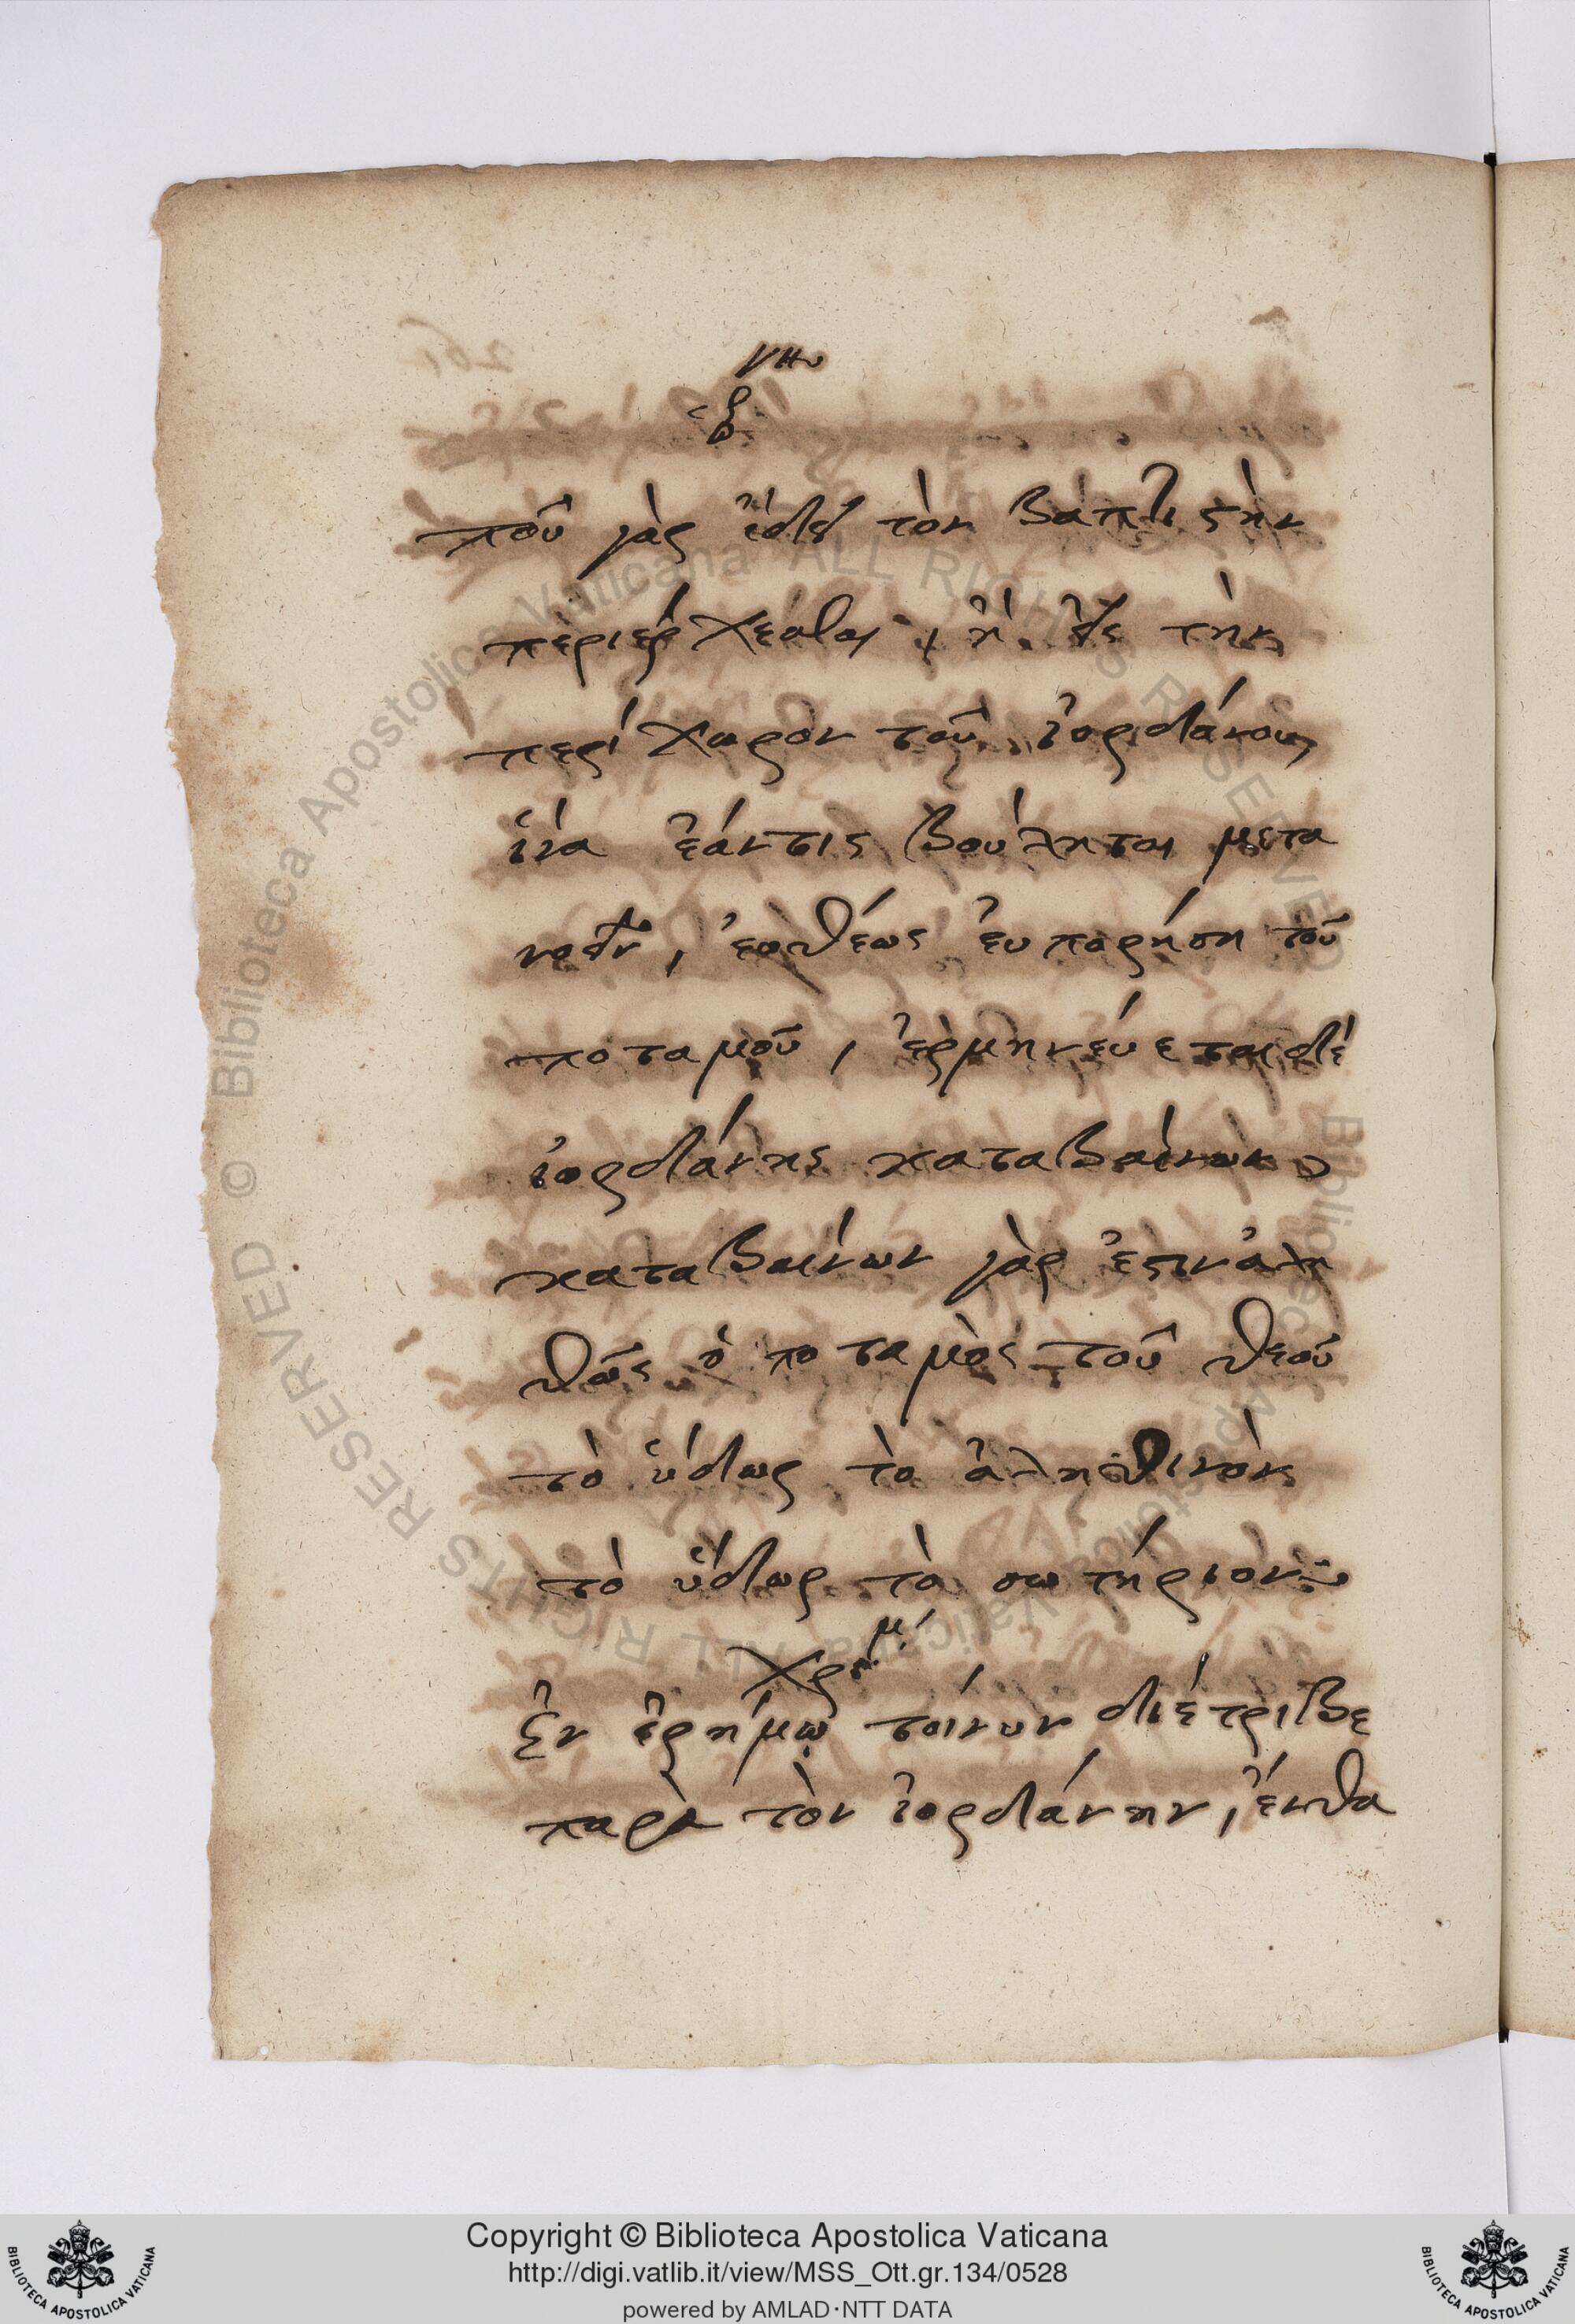 ποῦ γὰρ ἔδει τὸν βαπτιστὴν
περιέρχεσθαι, ἢ εἰς τὴν
περίχωρον τοῦ ἰορδάνου,
ἵνα ἐάν τις βούληται μετα
νοεῖν, εὐθέως εὐπορήση τοῦ
ποταμοῦ, ἑρμηνεύεται δὲ
ἰορδάνης καταβαίνων
καταβαίνων γὰρ ἐστιν ἀλη
θῶς ὁ ποταμὸς τοῦ θεοῦ
τὸ ὕδωρ τὸ ἀληθινὸν
τὸ ὕδωρ τὸ σωτήριον:
Ἐν ἐρήμῳ τοίνυν διέτριβε
παρὰ τὸν ἰορδάνην, ἔνθα
© Biblioteca Apostolica Vaticana ALL RIGHTS RESERVED
Copyright © Biblioteca Apostolica Vaticana
http://digi.vatlib.it/view/MSS_Ott.gr.134/0528
powered by AMLAD·NTT DATA
BIBLIOTECA APOSTOLICA VATICANA
BIBLIOTECA APOSTOLICA VATICANA